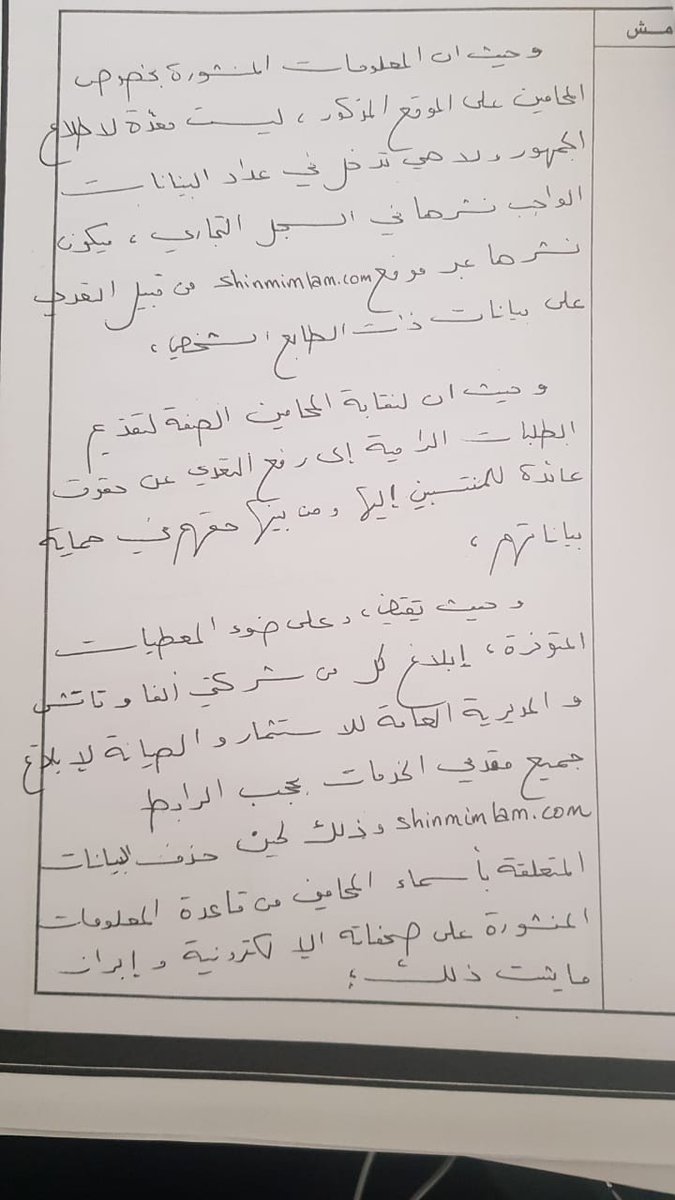 مش
وحيث ان المعلومات المنشورة بخصوص
المحامين على الموقع المذكور، ليست معدّة لاطلاع
الجمهور ولا هي تدخل في عداد البيانات
الواجب نشرها في السجل التجاري، فيكون
نشرها عبر موقع shinmimlam.com من قبيل التعدي
على بيانات ذات الطابع الشخصي،
وحيث ان لنقابة المحامين الصفة لتقديم
الطلبات الرامية إلى رفع التعدي عن حقوق
عائدة للمنتسبين إليها ومن بينها حقهم في حماية
بياناتهم،
وحيث يقتضي، وعلى ضوء المعطيات
المتوفرة، إبلاغ كل من شركتي ألفا وتاتش
والمديرية العامة للاستثمار والصيانة لإبلاغ
جميع مقدمي الخدمات بحجب الرابط
shinmimlam.com وذلك لحين حذف البيانات
المتعلقة بأسماء المحامين من قاعدة المعلومات
المنشورة على صفحاته الالكترونية وإبراز
ما يثبت ذلك؛